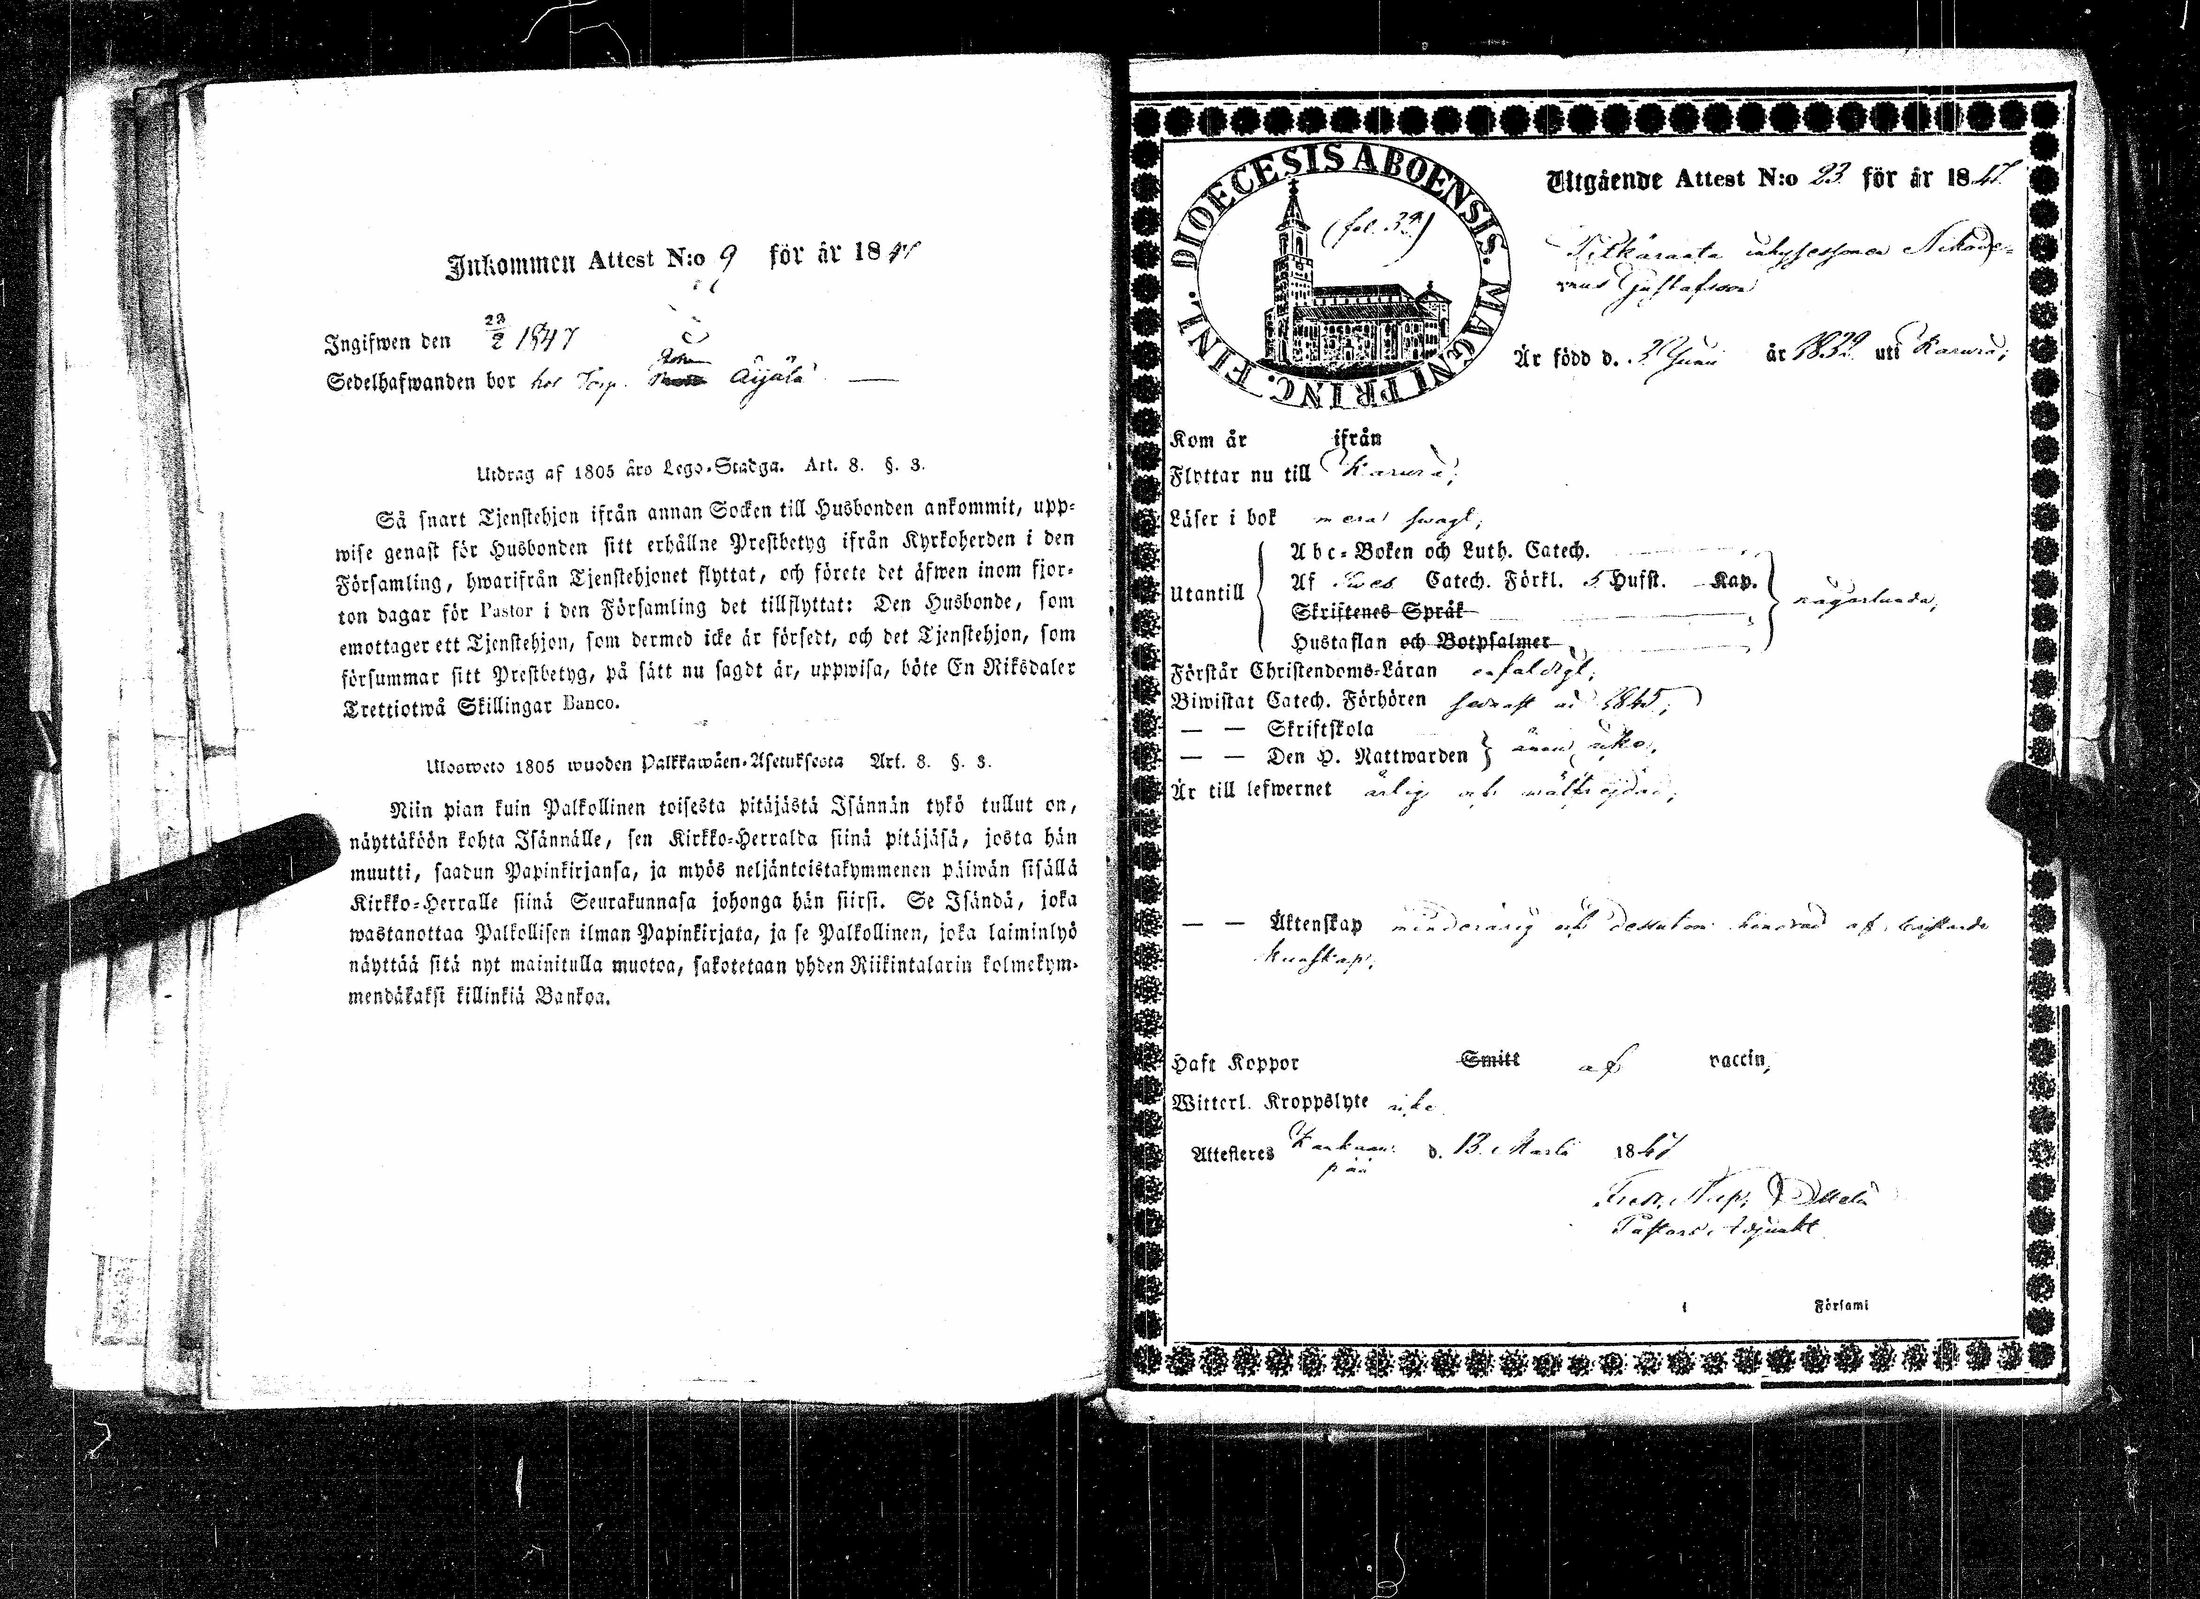 Inkommen Attest N:o 9 för år 1847
Ingifwen den 23/2 1847
Sedelhafwanden bor hos Torp. Johan Äijälä
Utdrag af 1805 åro Lego-Stadga. Art. 8. §. 3.
Så snart Tjenstehjon ifrån annan Socken till Husbonden ankommit, upp-
wise genast för Husbonden sitt erhållne Prestbetyg ifrån Kyrkoherden i den
Församling, hwarifrån Tjenstehjonet flyttat, och förete det äfwen inom fjor-
ton dagar för Pastor i den Församling det tillflyttat: Den Husbonde, som
emottager ett Tjenstehjon, som dermed icke är försedt, och det Tjenstehjon, som
försummar sitt Prestbetyg, på sätt nu sagdt är, uppwisa, böte En Riksdaler
Trettiotwå Skillingar Banco.
Ulosweto 1805 wuoden Palkkawäen-Asetuksesta Art. 8. §. 3.
Niin pian kuin Palkollinen toisesta pitäjästä Isännän tykö tullut on,
näyttäköön kohta Isännälle, sen Kirkko-Herralda siinä pitäjäsä, josta hän
muutti, saadun Papinkirjansa, ja myös neljäntoistakymmenen päiwän sisällä
Kirkko-Herralle siinä Seurakunnasa johonga hän siirsi. Se Isändä, joka
wastanottaa Palkollisen ilman Papinkirjata, ja se Palkollinen, joka laiminlyö
näyttää sitä nyt mainitulla muotoa, sakotetaan yhden Riikintalarin kolmekym-
mendäkaksi killinkiä Bankoa.
DIOECESIS ABOENSIS. MAGNI PRINC. FINL.
(fol. 39)
Utgående Attest N:o 23 för år 1847.
inhysessonen Nikode-
mus Gustafsson
Är född d. 3 Junii år 1832 uti Karwia;
Kom år ifrån
Flyttar nu till Karwia;
Läser i bok mera swagt;
Utantill
Abc-Boken och Luth. Catech.
Af Sweb. Catech. Förkl. 5 Hufst. Kap.
Skriftenes Språk
Hustaflan och Botpsalmer
någorlunda;
Förstår Christendoms-Läran enfaldigt;
Biwistat Catech. Förhören sednast år 1845;
— — Skriftskola
— — Den H. Nattwarden ännu icke;
Är till lefwernet ärlig och wälfrejdad;
— — Äktenskap minderårig och dessutom hindrad af bristande
kunskap;
Haft Koppor Smitt af vaccin;
Witterl. Kroppslyte icke.
Attesteras Kankaan-
pää d. 13 Martii 1847
Fredr. Nep.
Pastors Adjunkt
i Församl